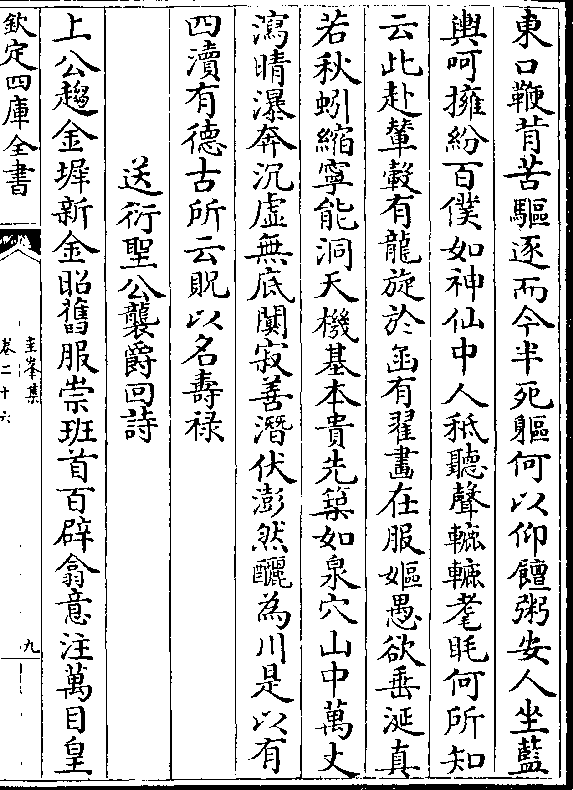 東口鞭背苦驅逐而今半死軀何以仰饘粥安人坐藍
輿呵擁紛百僕如神仙中人秪聽聲轆轆耄眊何所知
云此赴輦轂有龍旋於函有翟畫在服嫗愚欲垂涎真
若秋蚓縮寧能洞天機基本貴先築如泉穴山中萬丈
瀉晴瀑奔沉虛無底闃寂善潛伏澎然釃為川是以有
四瀆有德古所云貺以名壽祿
送衍聖公襲爵回詩
上公趨金墀新金昭舊服崇班首百辟翕意注萬目皇
欽定四庫全書
圭峯集
卷二十六
九